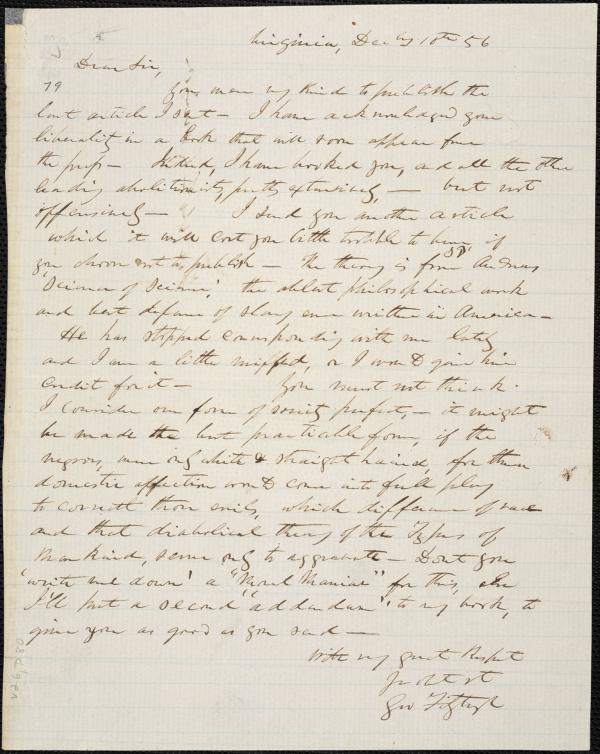 Virginia, Dec by 10th 56
Dear Sir,
79 You were very kind to publish the
last article I sent - I have acknowledged your
liberality in a book that will soon appear from
the press - Indeed, I have booked you, and all the other
leading abolitionists, pretty extensively, - but not
offensively - I send you another article
which it will cost you little trouble to burn if
you choose not to publish - The theory is from Andrews
'Science of Science', the ablest philosophical work
and best defence of slavery ever written in America -
He has stopped corresponding with me lately
and I am a little miffed, or I wou'd give him
credit for it - You must not think
I consider our form of society perfect, - it might
be made the best practicable form, if the
negroes, were only white & straight haired, for then
domestic affection wou'd come into full play
to correct those evils, which difference of race
and that diabolical theory of the Types of
Mankind, serve only to aggravate - Dont you
'write me down' a "Moral Maniac" for this, else
I'll put a second "addendum" to my book, to
give you as good as you send -
With very great Respect
Yr obt st
Geo Fitzhugh